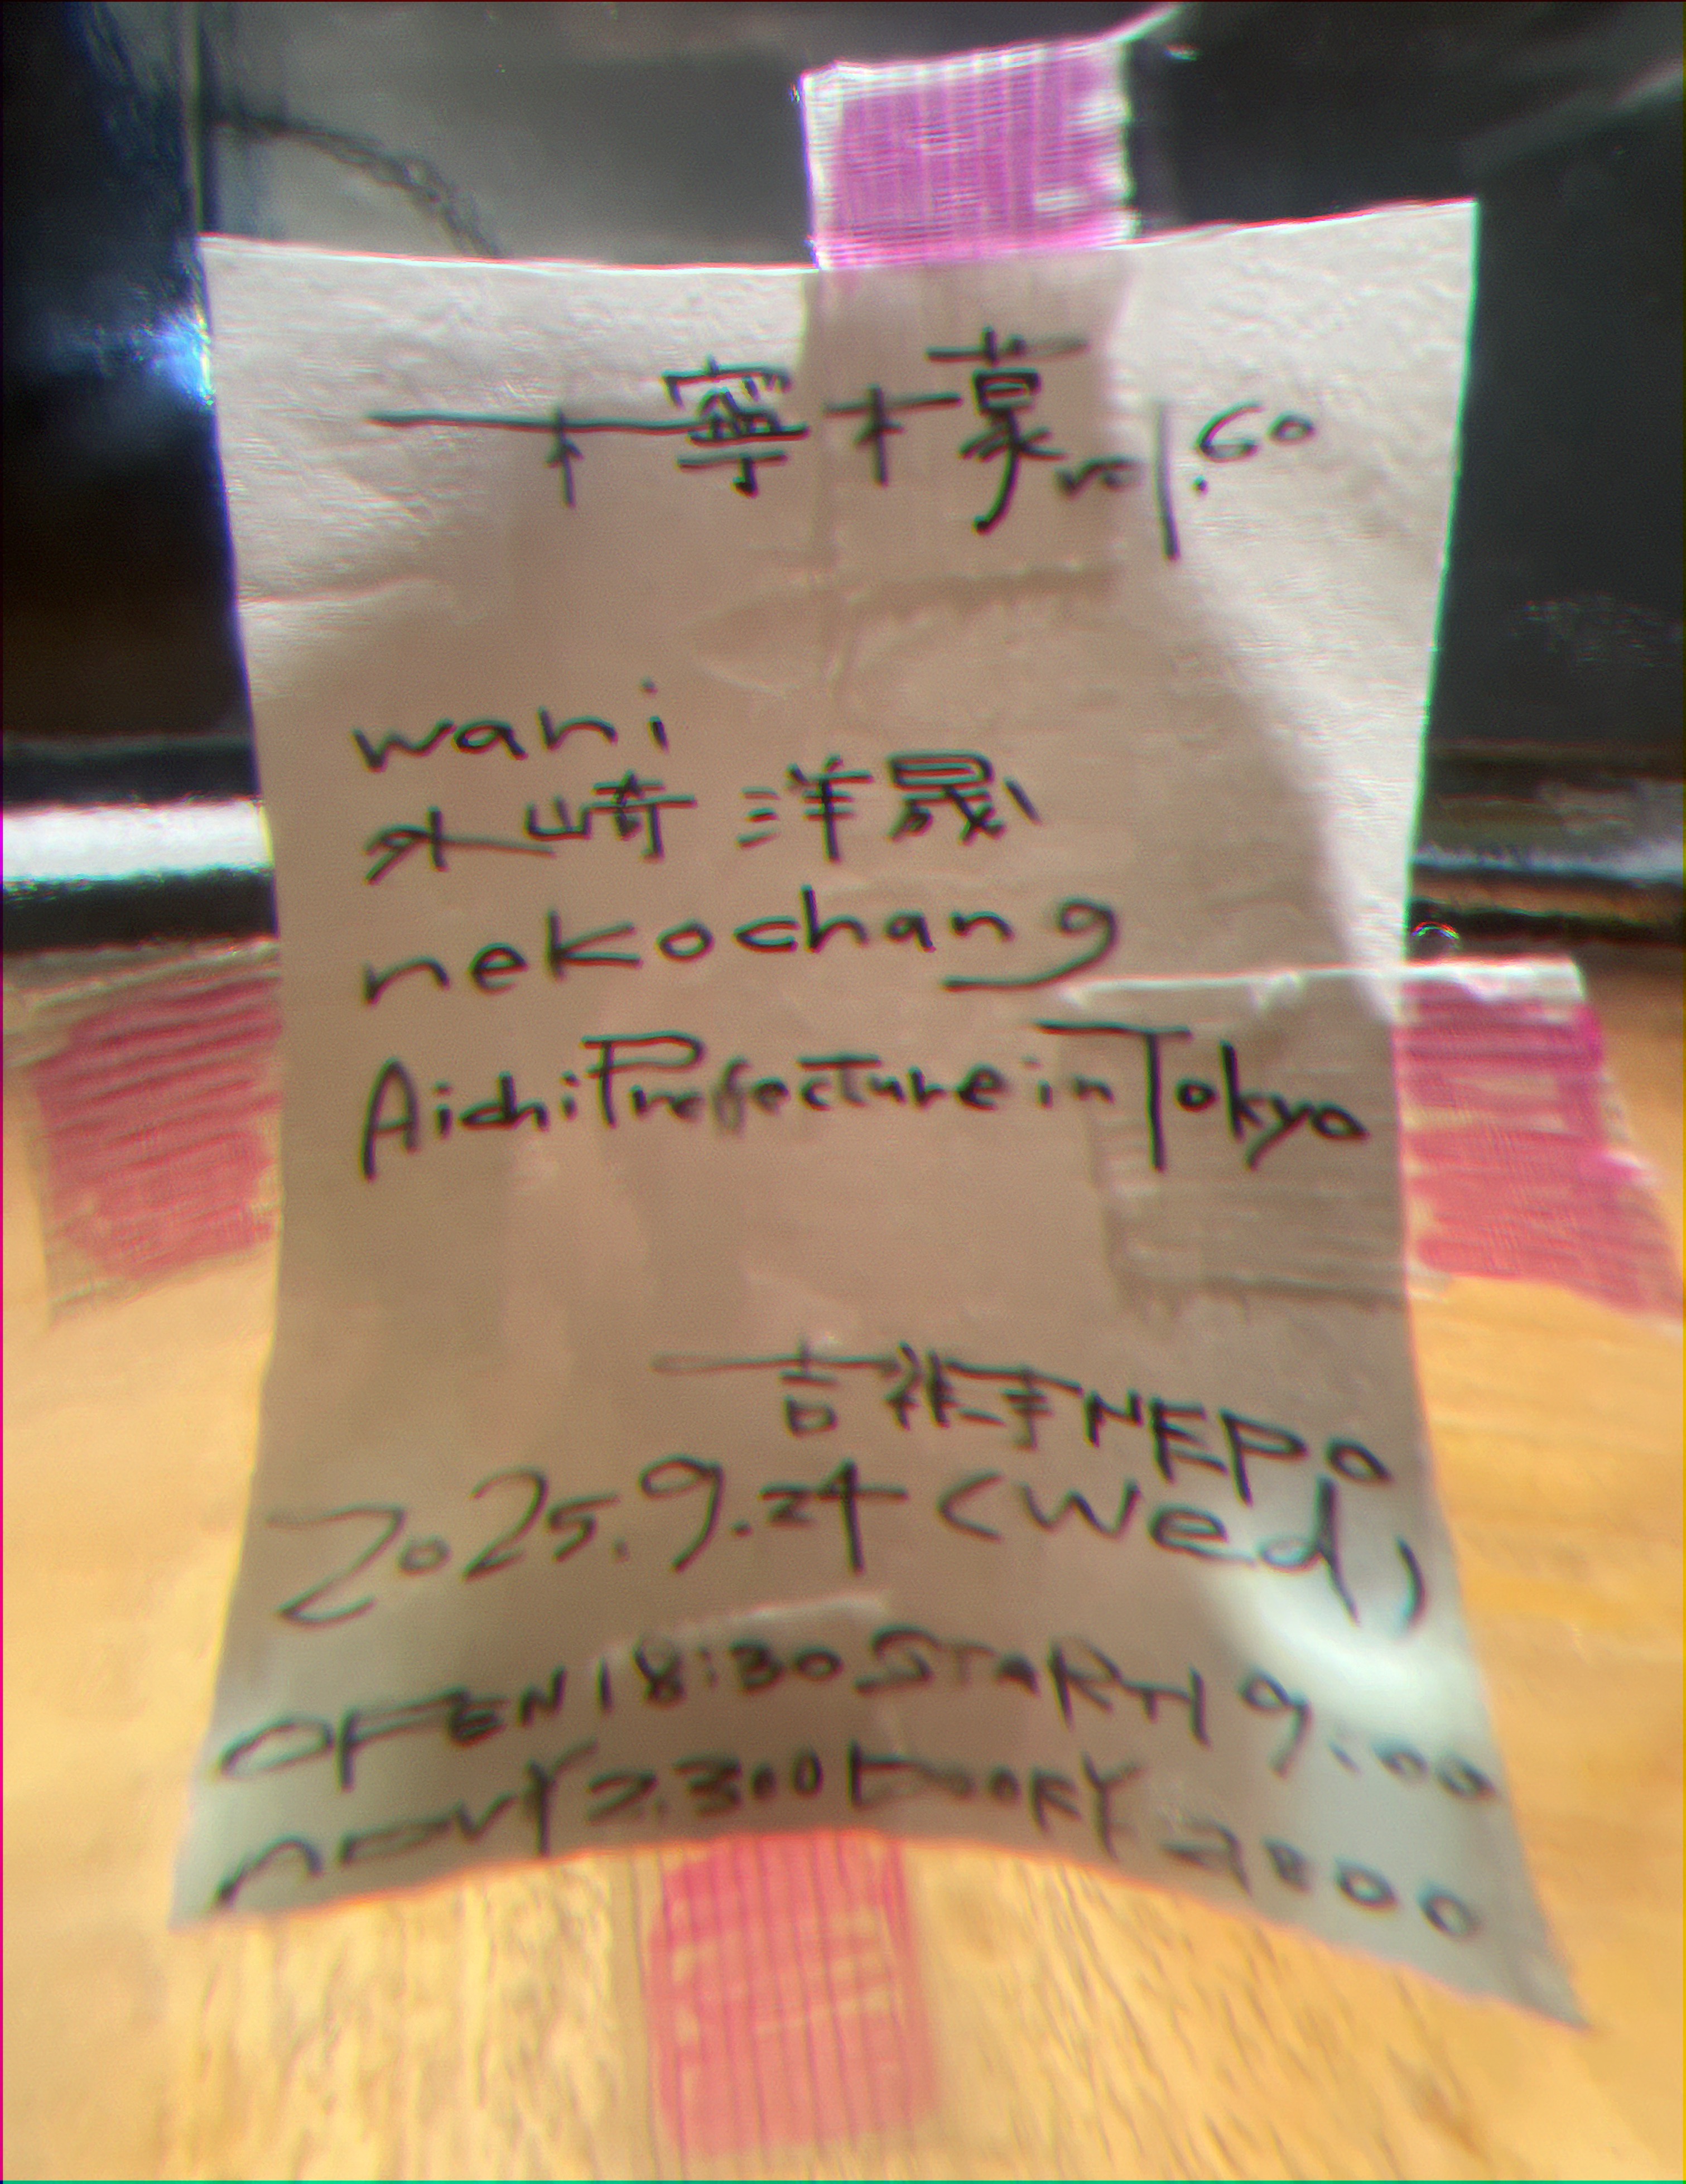 檸檬vol.60
wani
水崎 洋晟
nekochang
AichiPrefectureinTokyo
吉祥寺NEPO
2025.9.24 (Wed)
OPEN18:30 START19:00
¥2,300 DOOR¥2800